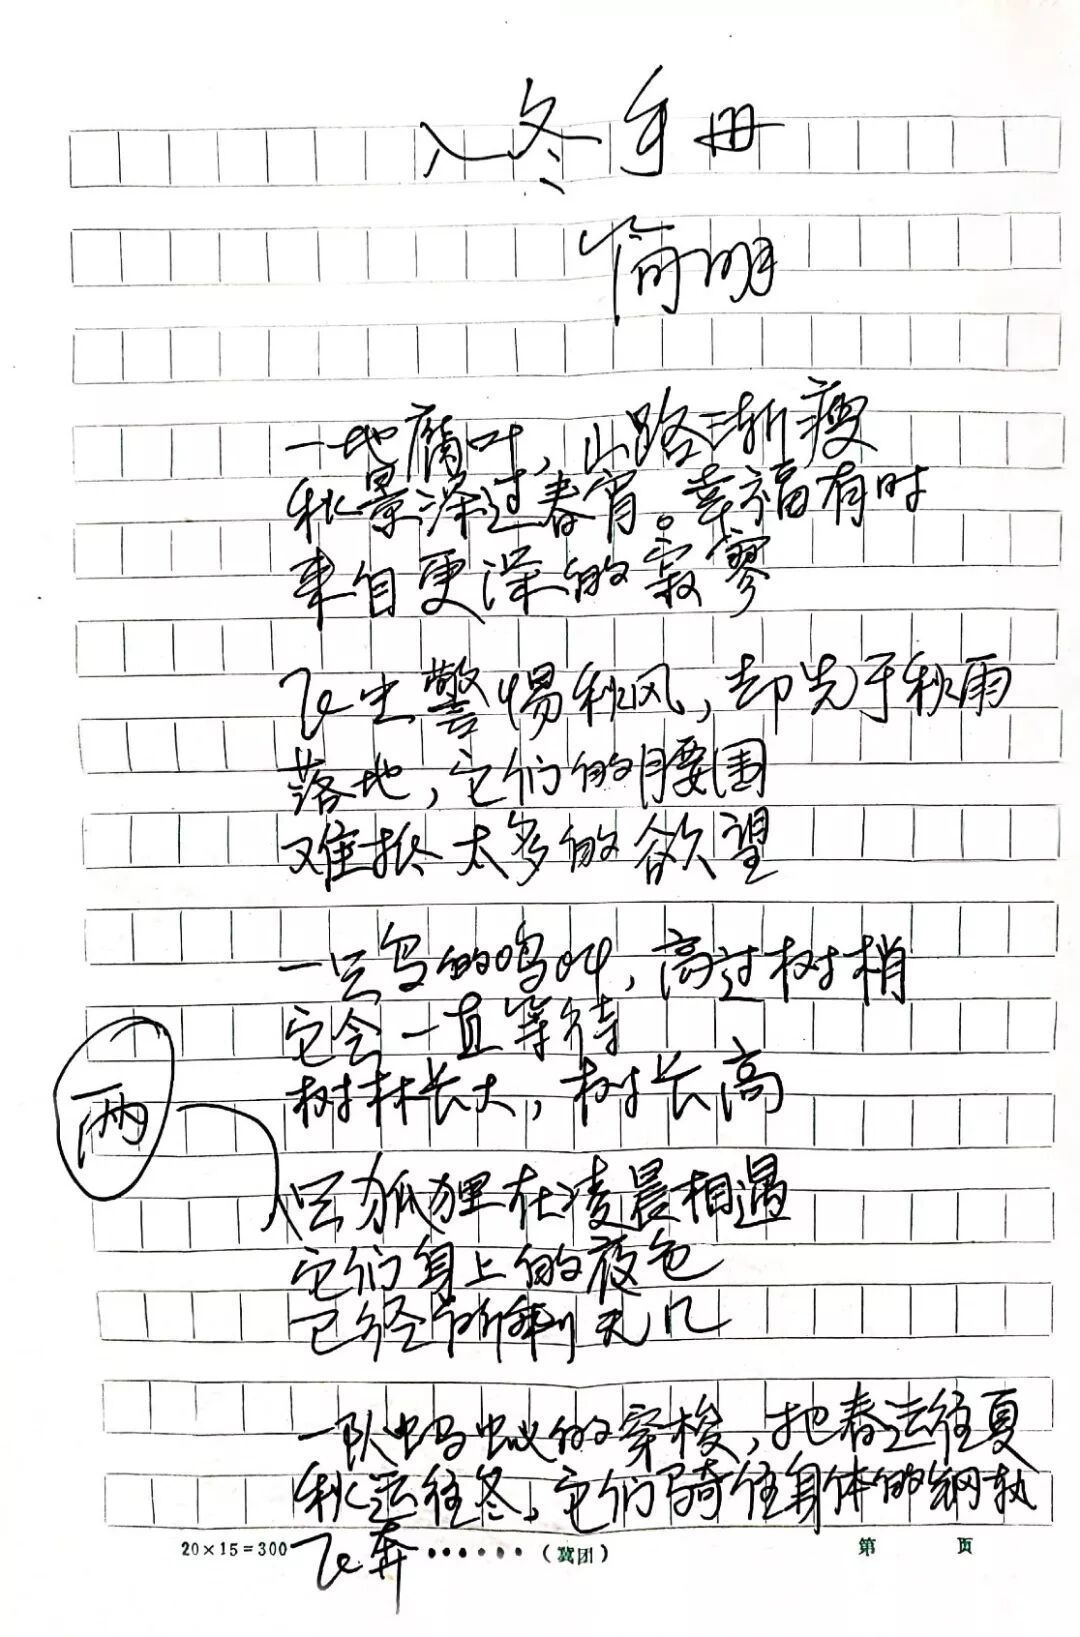 入冬手册
简明
一地腐叶，山路渐瘦
秋景深过春宵。幸福有时
来自更深的寂寥
飞虫警惕秋风，却先于秋雨
落地，它们的腰围
难抵太多的欲望
一只鸟的鸣叫，高过树梢
它会一直等待
树林长大，树长高
两只狐狸在凌晨相遇
它们身上的夜色
已经所剩无几
一队蚂蚁的穿梭，把春运往夏
秋运往冬，它们骑住身体的钢轨
飞奔
20×15=300 （冀团） 第 页